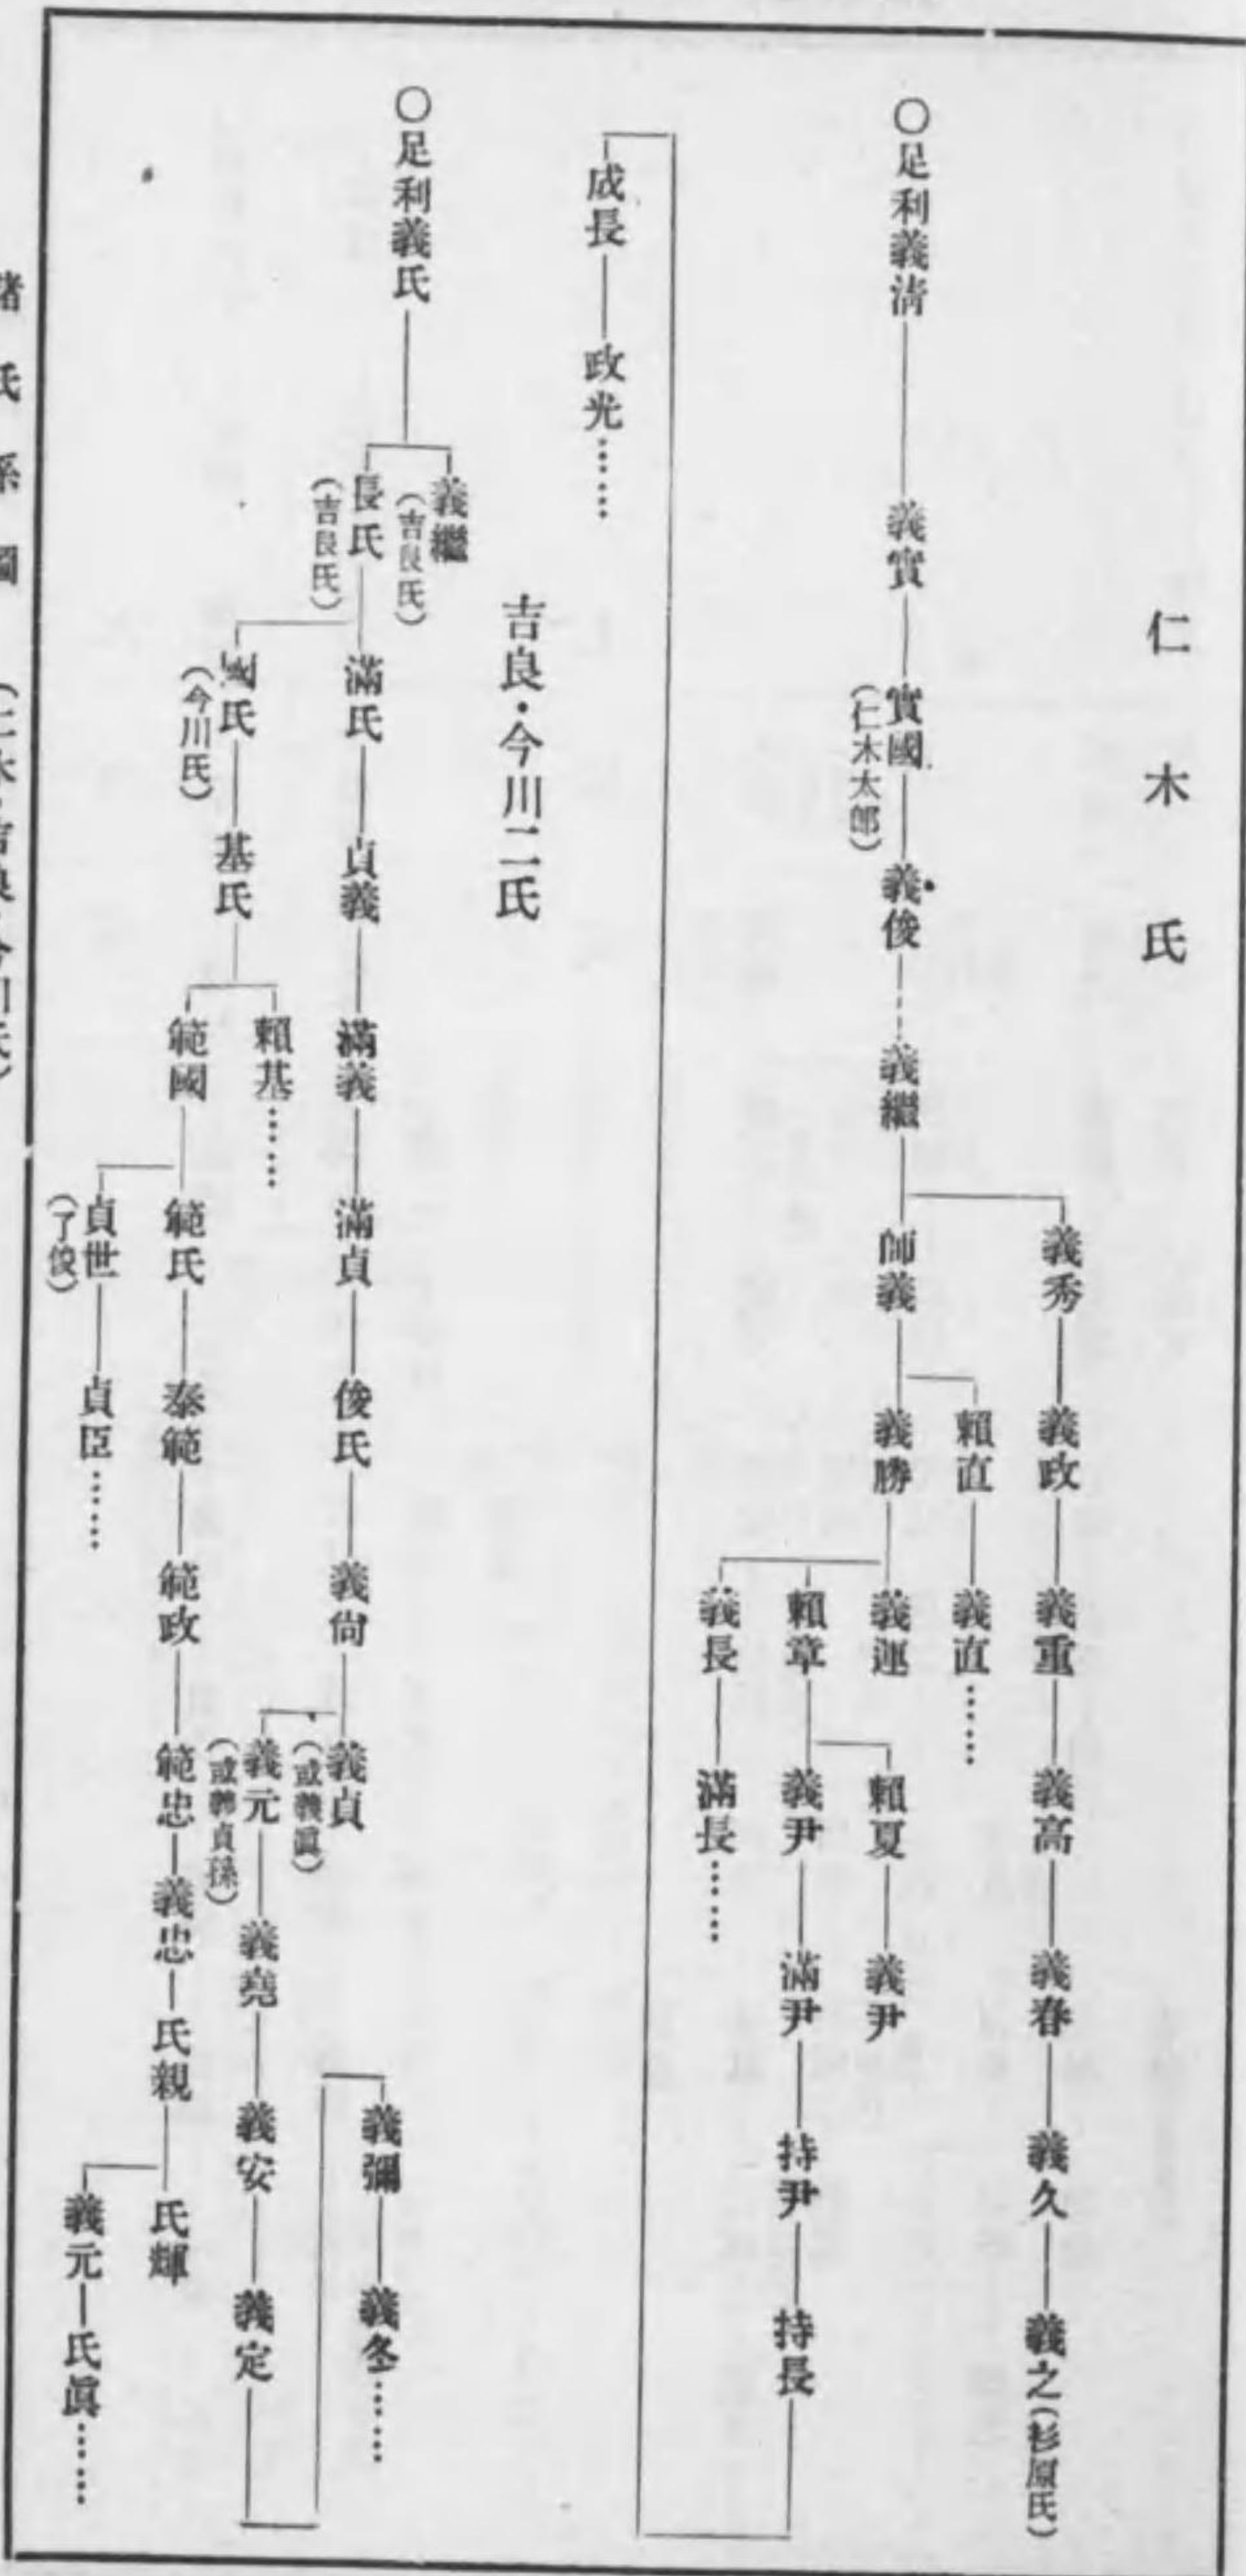 仁木氏
○足利義淸―義實―實國―義俠┄義繼
(仁木太郎)
義秀―義政―義重―義高―義春―義久―義之(杉原氏)
師義
賴直―義直……
義勝
義運
賴章
賴夏―義尹
義尹―滿尹―持尹―持長
義長―滿長……
成長―政光……
吉良・今川二氏
○足利義氏
義繼
(吉良氏)
長氏
(吉良氏)
滿氏―貞義―滿義―滿貞―俊氏―義尙
義貞
(或義眞)
義元―義堯―義安―義定
(或義貞孫)
義彌―義冬……
國氏―基氏
(今川氏)
賴基……
範國
範氏―泰範―範政―範忠―義忠―氏親
氏輝
義元―氏眞……
貞世―貞臣……
(了俊)
諸氏系圖 (仁木・吉良・今川氏)